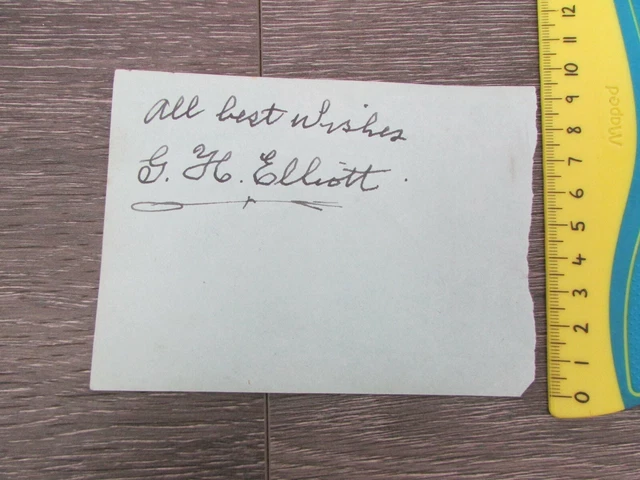 All best wishes
G. H. Elliott.
12
11
10
9
8
7
6
5
4
3
2
1
0
Maped